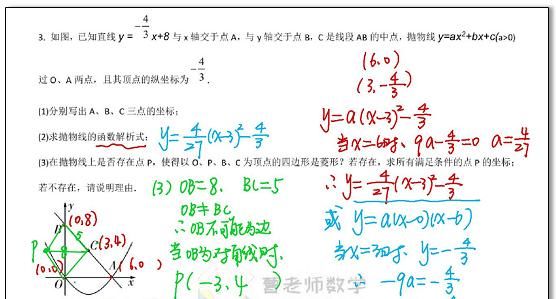 3. 如图，已知直线 y = -4/3 x+8 与 x 轴交于点 A，与 y 轴交于点 B，C 是线段 AB 的中点，抛物线 y=ax²+bx+c(a>0)
过 O、A 两点，且其顶点的纵坐标为 -4/3 .
(1)分别写出 A、B、C 三点的坐标；
(2)求抛物线的函数解析式；
(3)在抛物线上是否存在点 P，使得以 O、P、B、C 为顶点的四边形是菱形？若存在，求所有满足条件的点 P 的坐标；
若不存在，请说明理由．
(6,0)
(3,-4/3)
y=a(x-3)²-4/3
当x=6时, 9a-4/3=0 a=4/27
∴y=4/27(x-3)²-4/3
或 y=a(x-0)(x-6)
当x=3时, y=-4/3
∴ -9a=-4/3
y=4/27(x-3)²-4/3
(3) OB=8, BC=5
OB≠BC
∴OB不可能为边
当OB为对角线时,
P(-3,4)
y
B
(0,8)
5
P
C
(3,4)
(0,0)
O
A
(6,0)
x
曹老师数学